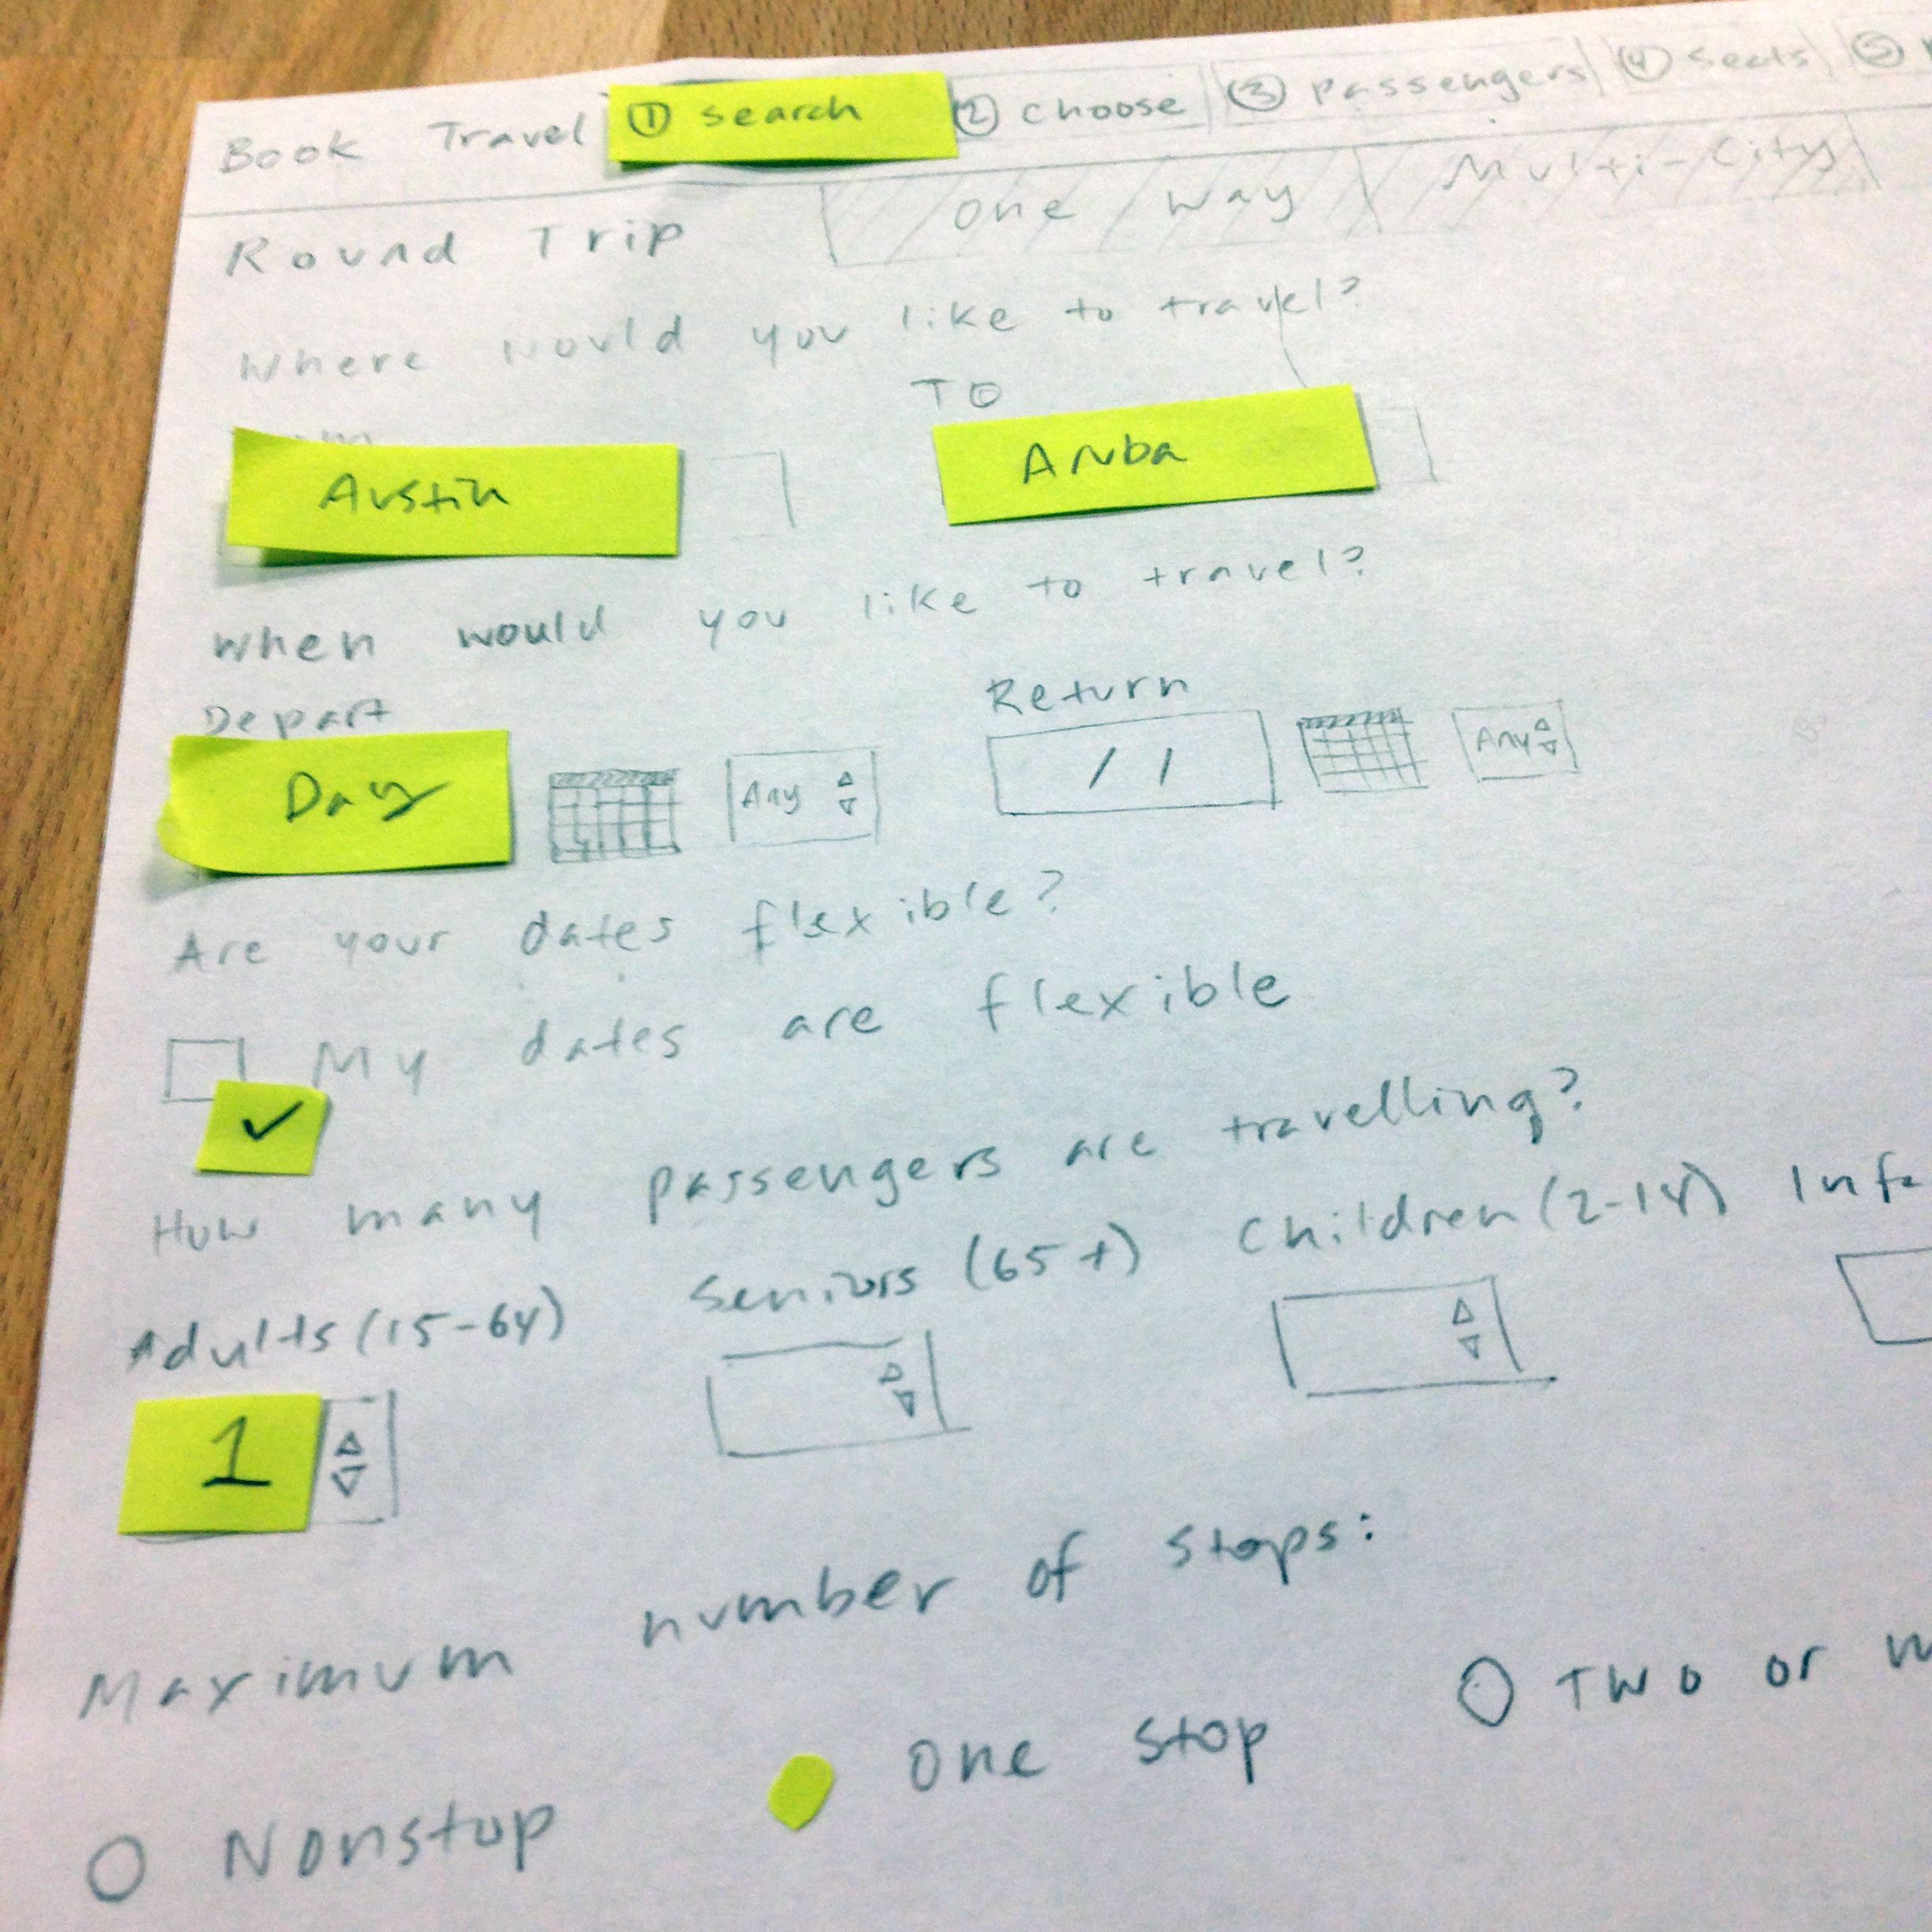 Book Travel ① search ② choose ③ passengers ④ seats ⑤
Round Trip one way Multi-City
Where would you like to travel?
TO
Austin Aruba
When would you like to travel?
Depart Return
Day Any / / Any
Are your dates flexible?
My dates are flexible
✓
How many passengers are travelling?
Adults (15-64) Seniors (65+) Children (2-14) Infa
1
Maximum number of stops:
Nonstop One stop Two or m